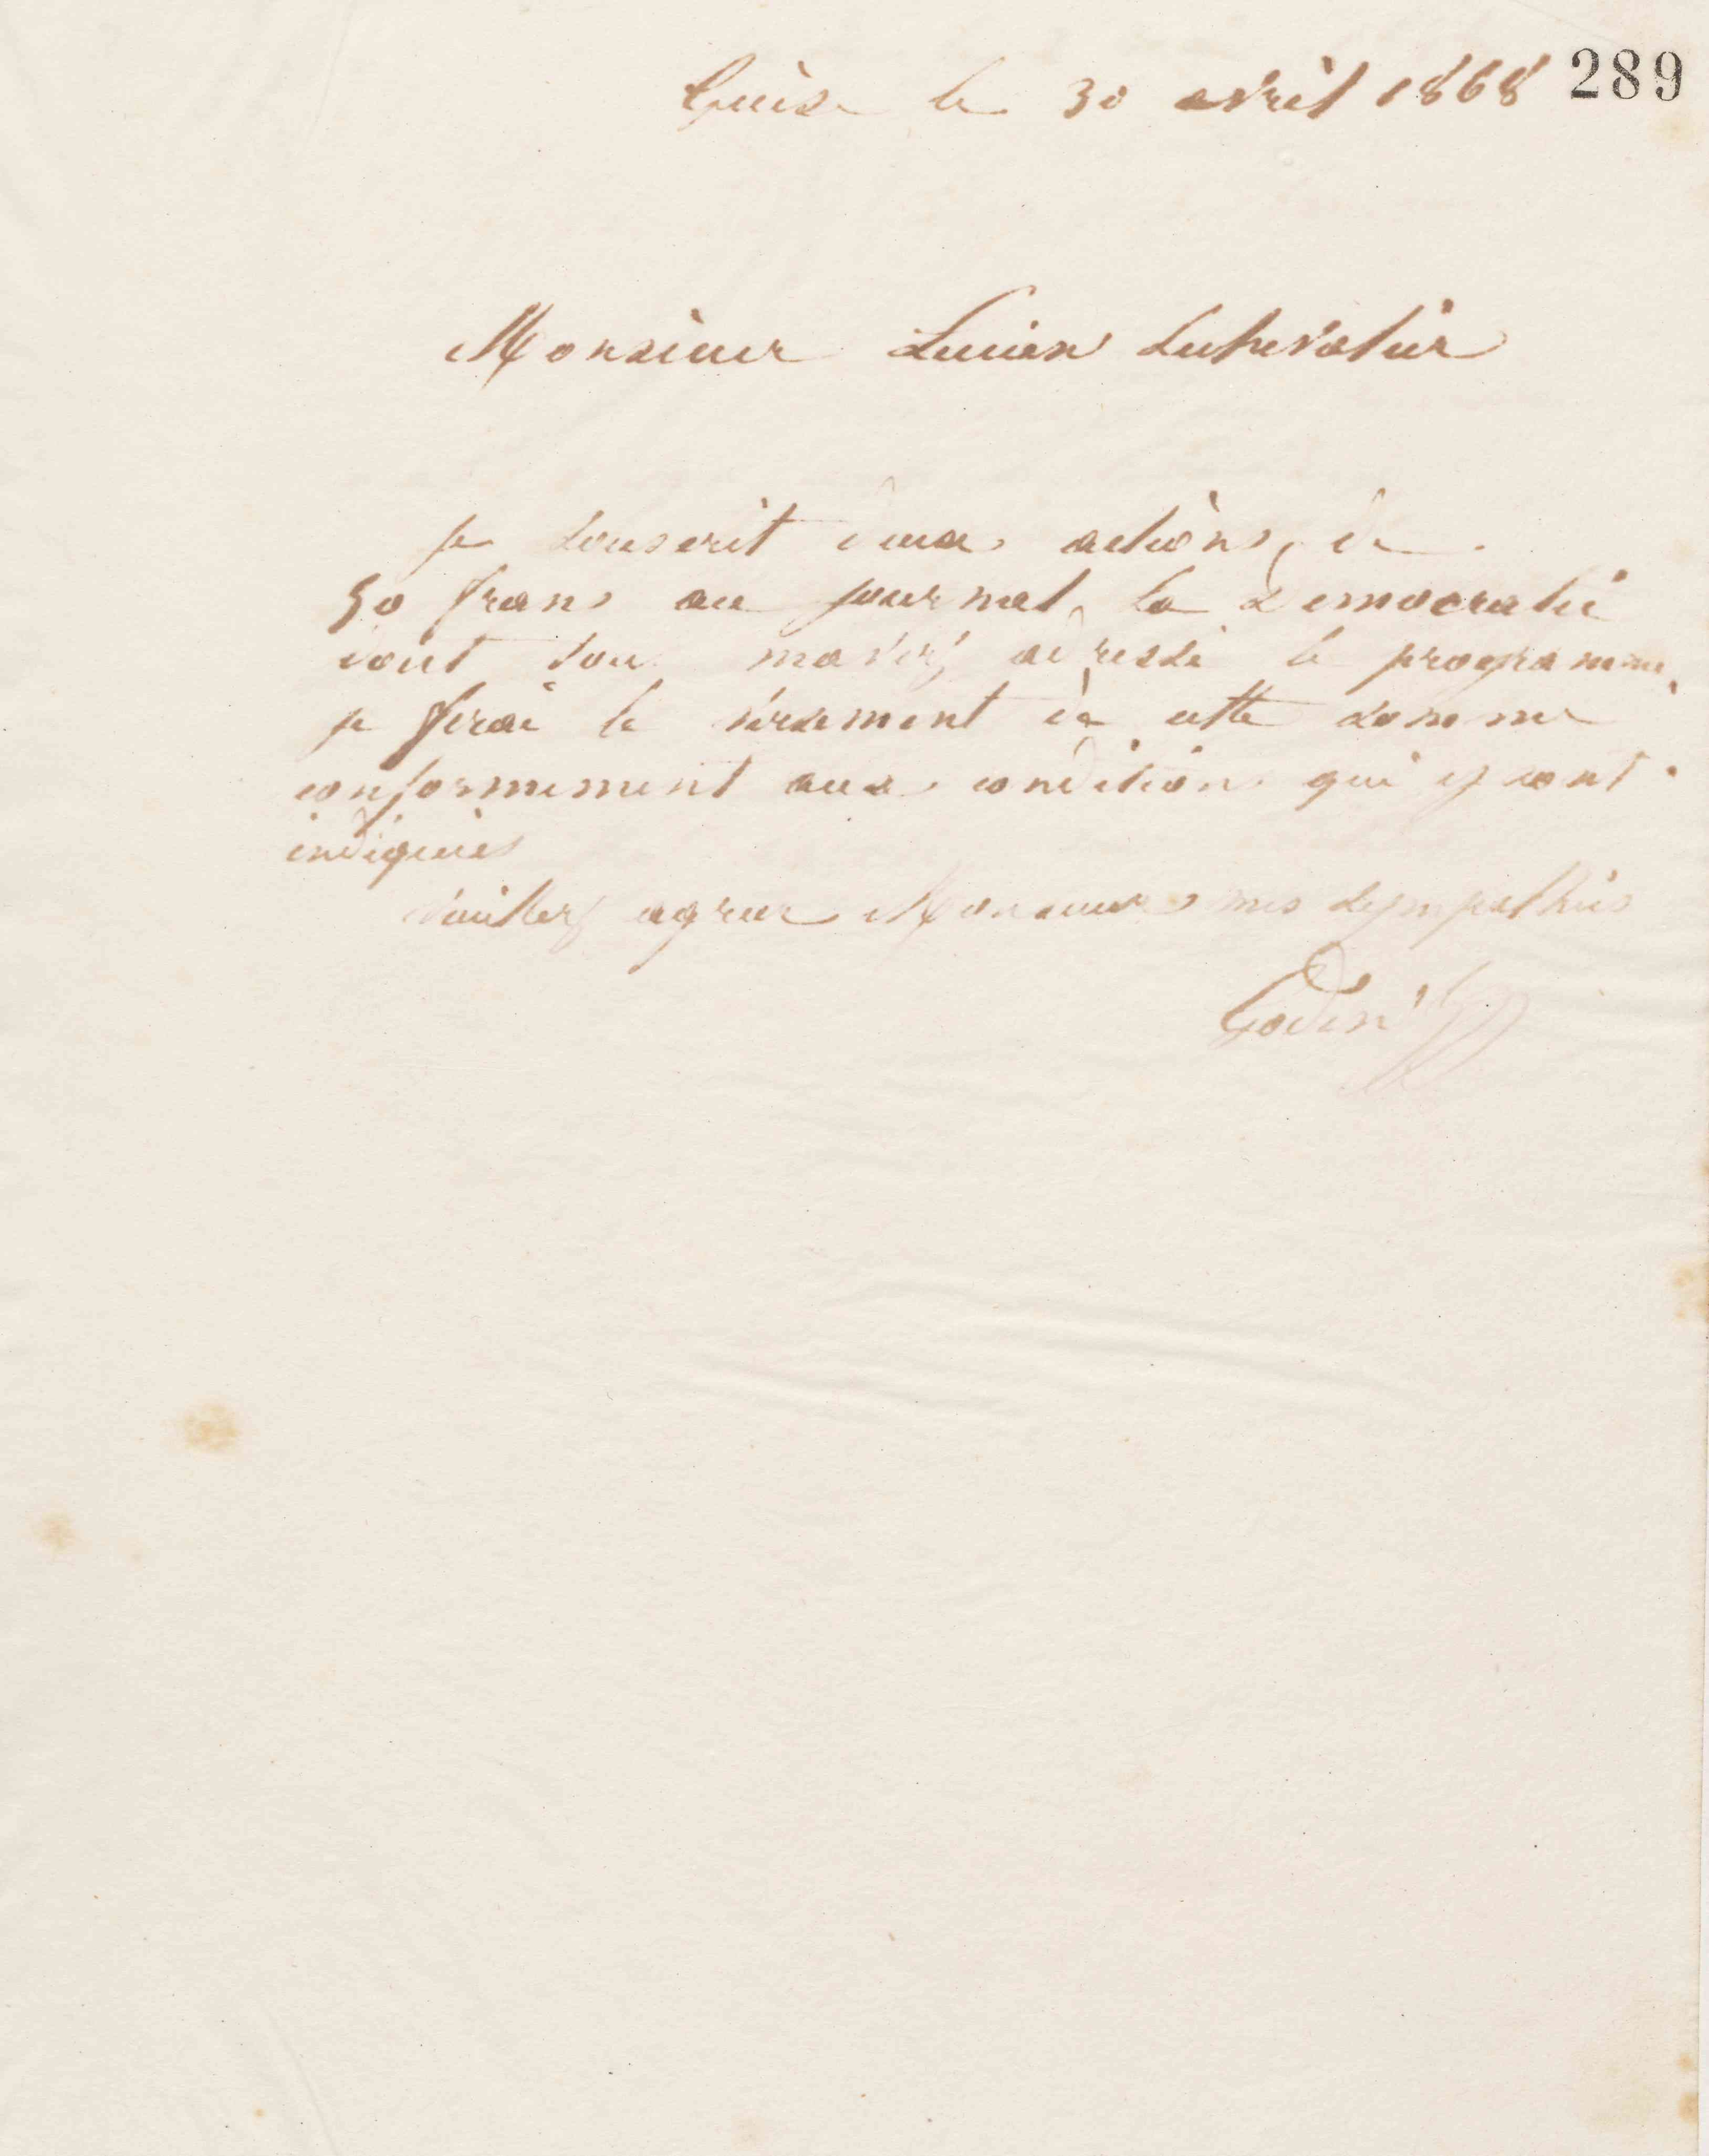 Guise le 30 avril 1868 289
Monsieur Lucien Lechevalier
je souscrit deux actions de
50 frans au journal la Democratie
dont vou mavez adressé le programme,
je ferai le versement de cette somme
conformement aux condition qui y sont
indiquées
Veuillez agreer Monsieur mes sympathies
Godin